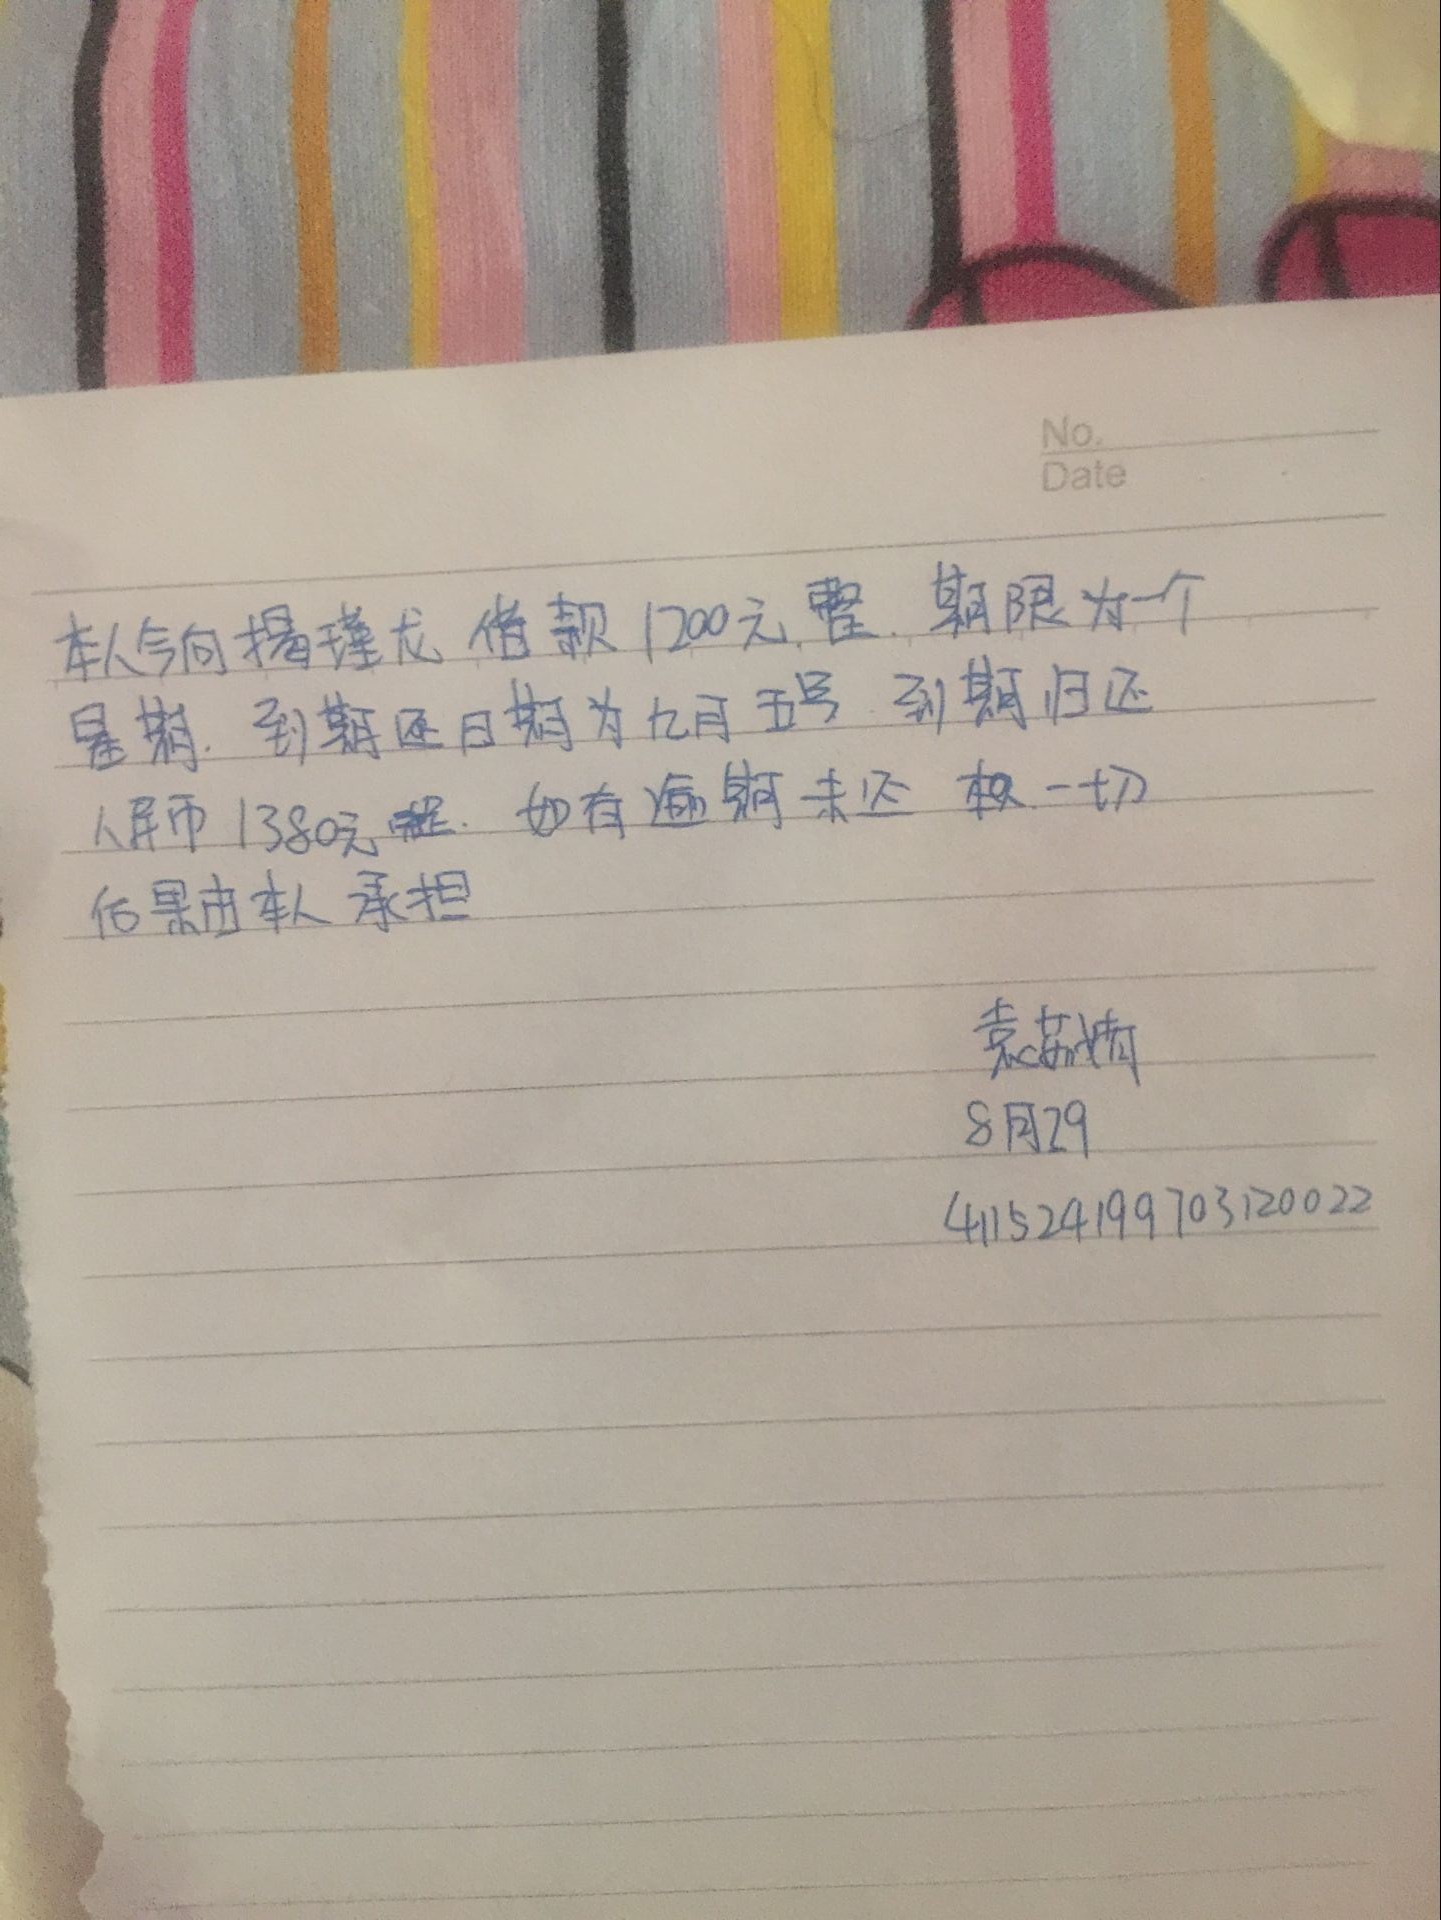 No.
Date
本人今向杨瑾龙借款1200元整.期限为一个
星期.到期还日期为九月五号.到期归还
人民币1380元整.如有逾期未还 一切
后果由本人承担
袁苏婧
8月29
411524199703120022